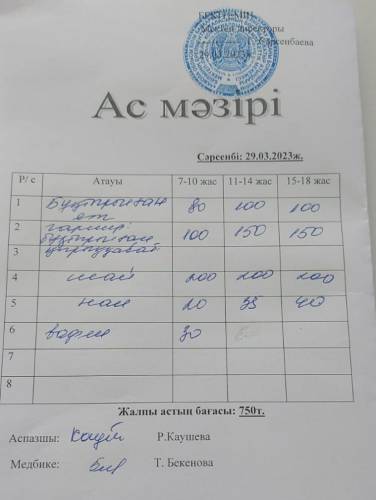 Мектеп директоры
Сәрсенбаева
29.03.2023ж
Ас мәзірі
Сәрсенбі: 29.03.2023ж.
Р/с Атауы 7-10 жас 11-14 жас 15-18 жас
1 Бұқтырылған ет 80 100 100
2 гарнир: бұқтырылған 100 150 150
3 қырыққабат
4 шай 200 200 200
5 нан 20 35 40
6 вафли 30
7
8
Жалпы астың бағасы: 750т.
Аспазшы: Р.Каушева
Медбике: Т. Бекенова